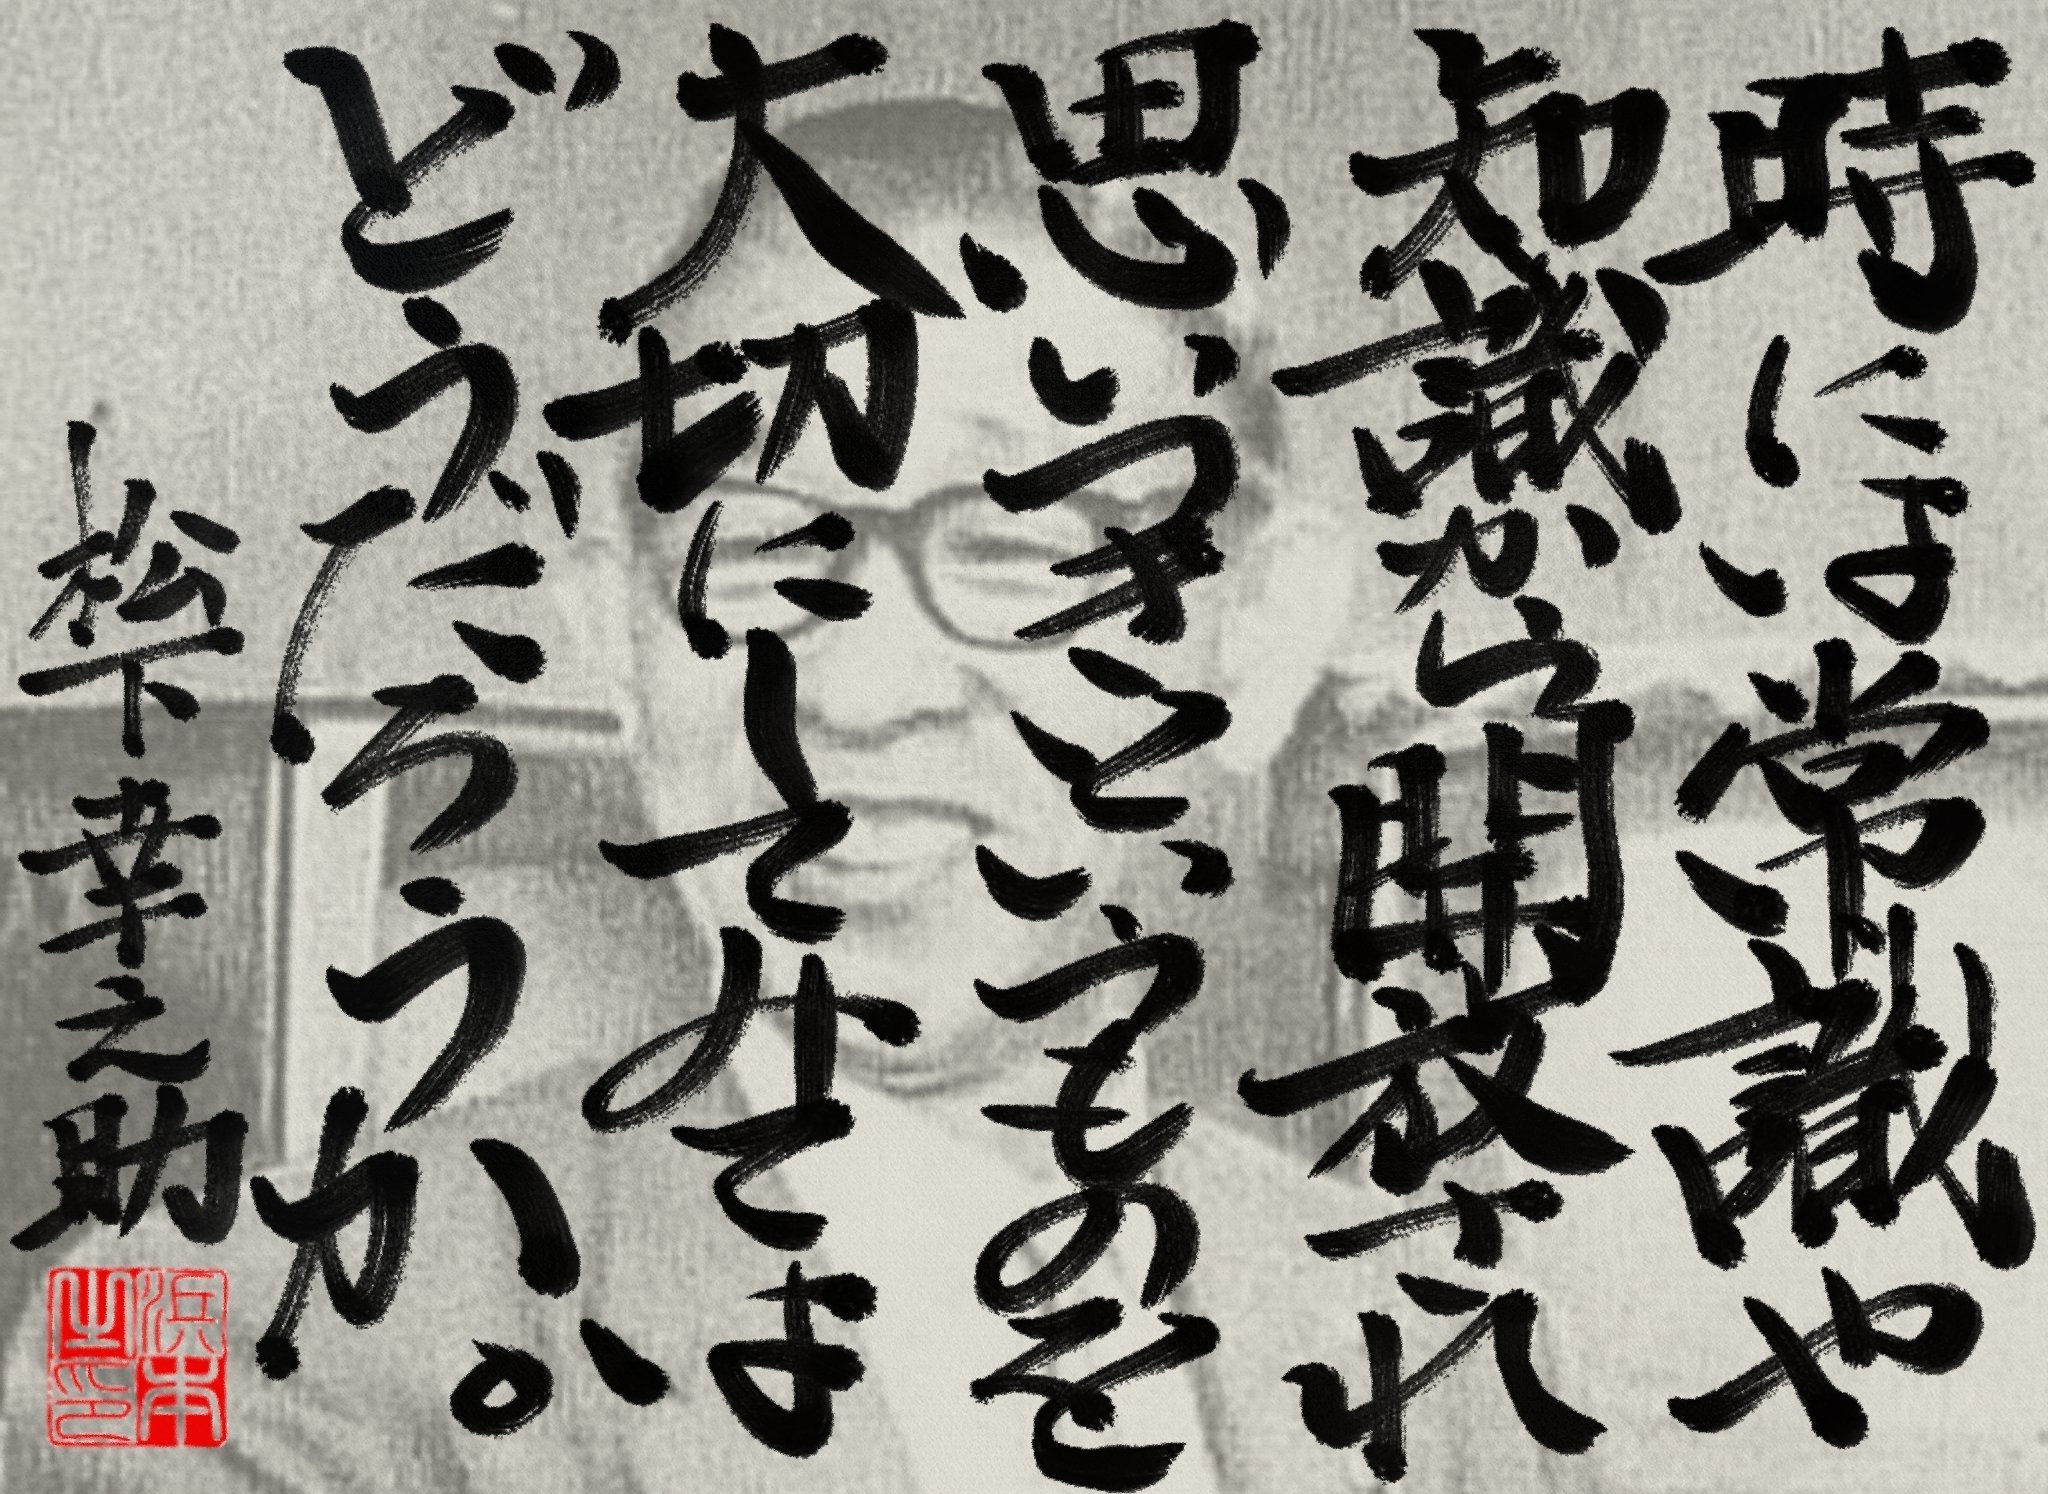 時には常識や
知識から開放され
思いつきというものを
大切にしてみては
どうだろうか。
松下幸之助
浜本之印